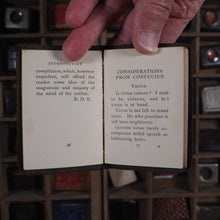 INTRODUCTORY
compilation, which, however
imperfect, will afford the
reader some idea of the
magnitude and majesty
of the mind of the author.
E. D. S.
CONSIDERATIONS
FROM CONFUCIUS
VIRTUE
Is virtue remote? I wish
to be virtuous, and lo!
virtue is at hand.
Virtue is not left to stand
alone. He who practises it
will have neighbours.
Genuine virtue rarely accompanies
artful speech or
insinuating looks.